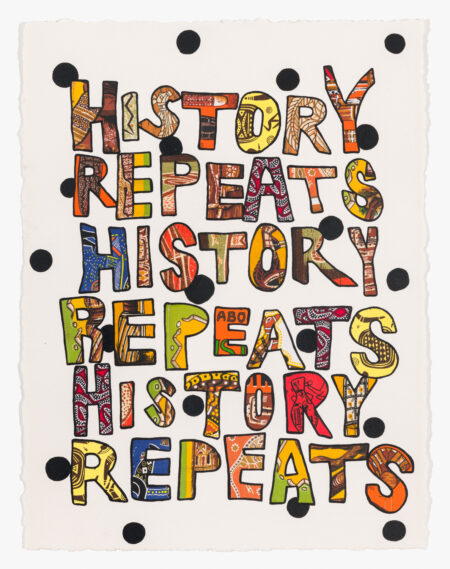 HISTORY
REPEATS
HISTORY
REPEATS
ABO
HISTORY
REPEATS